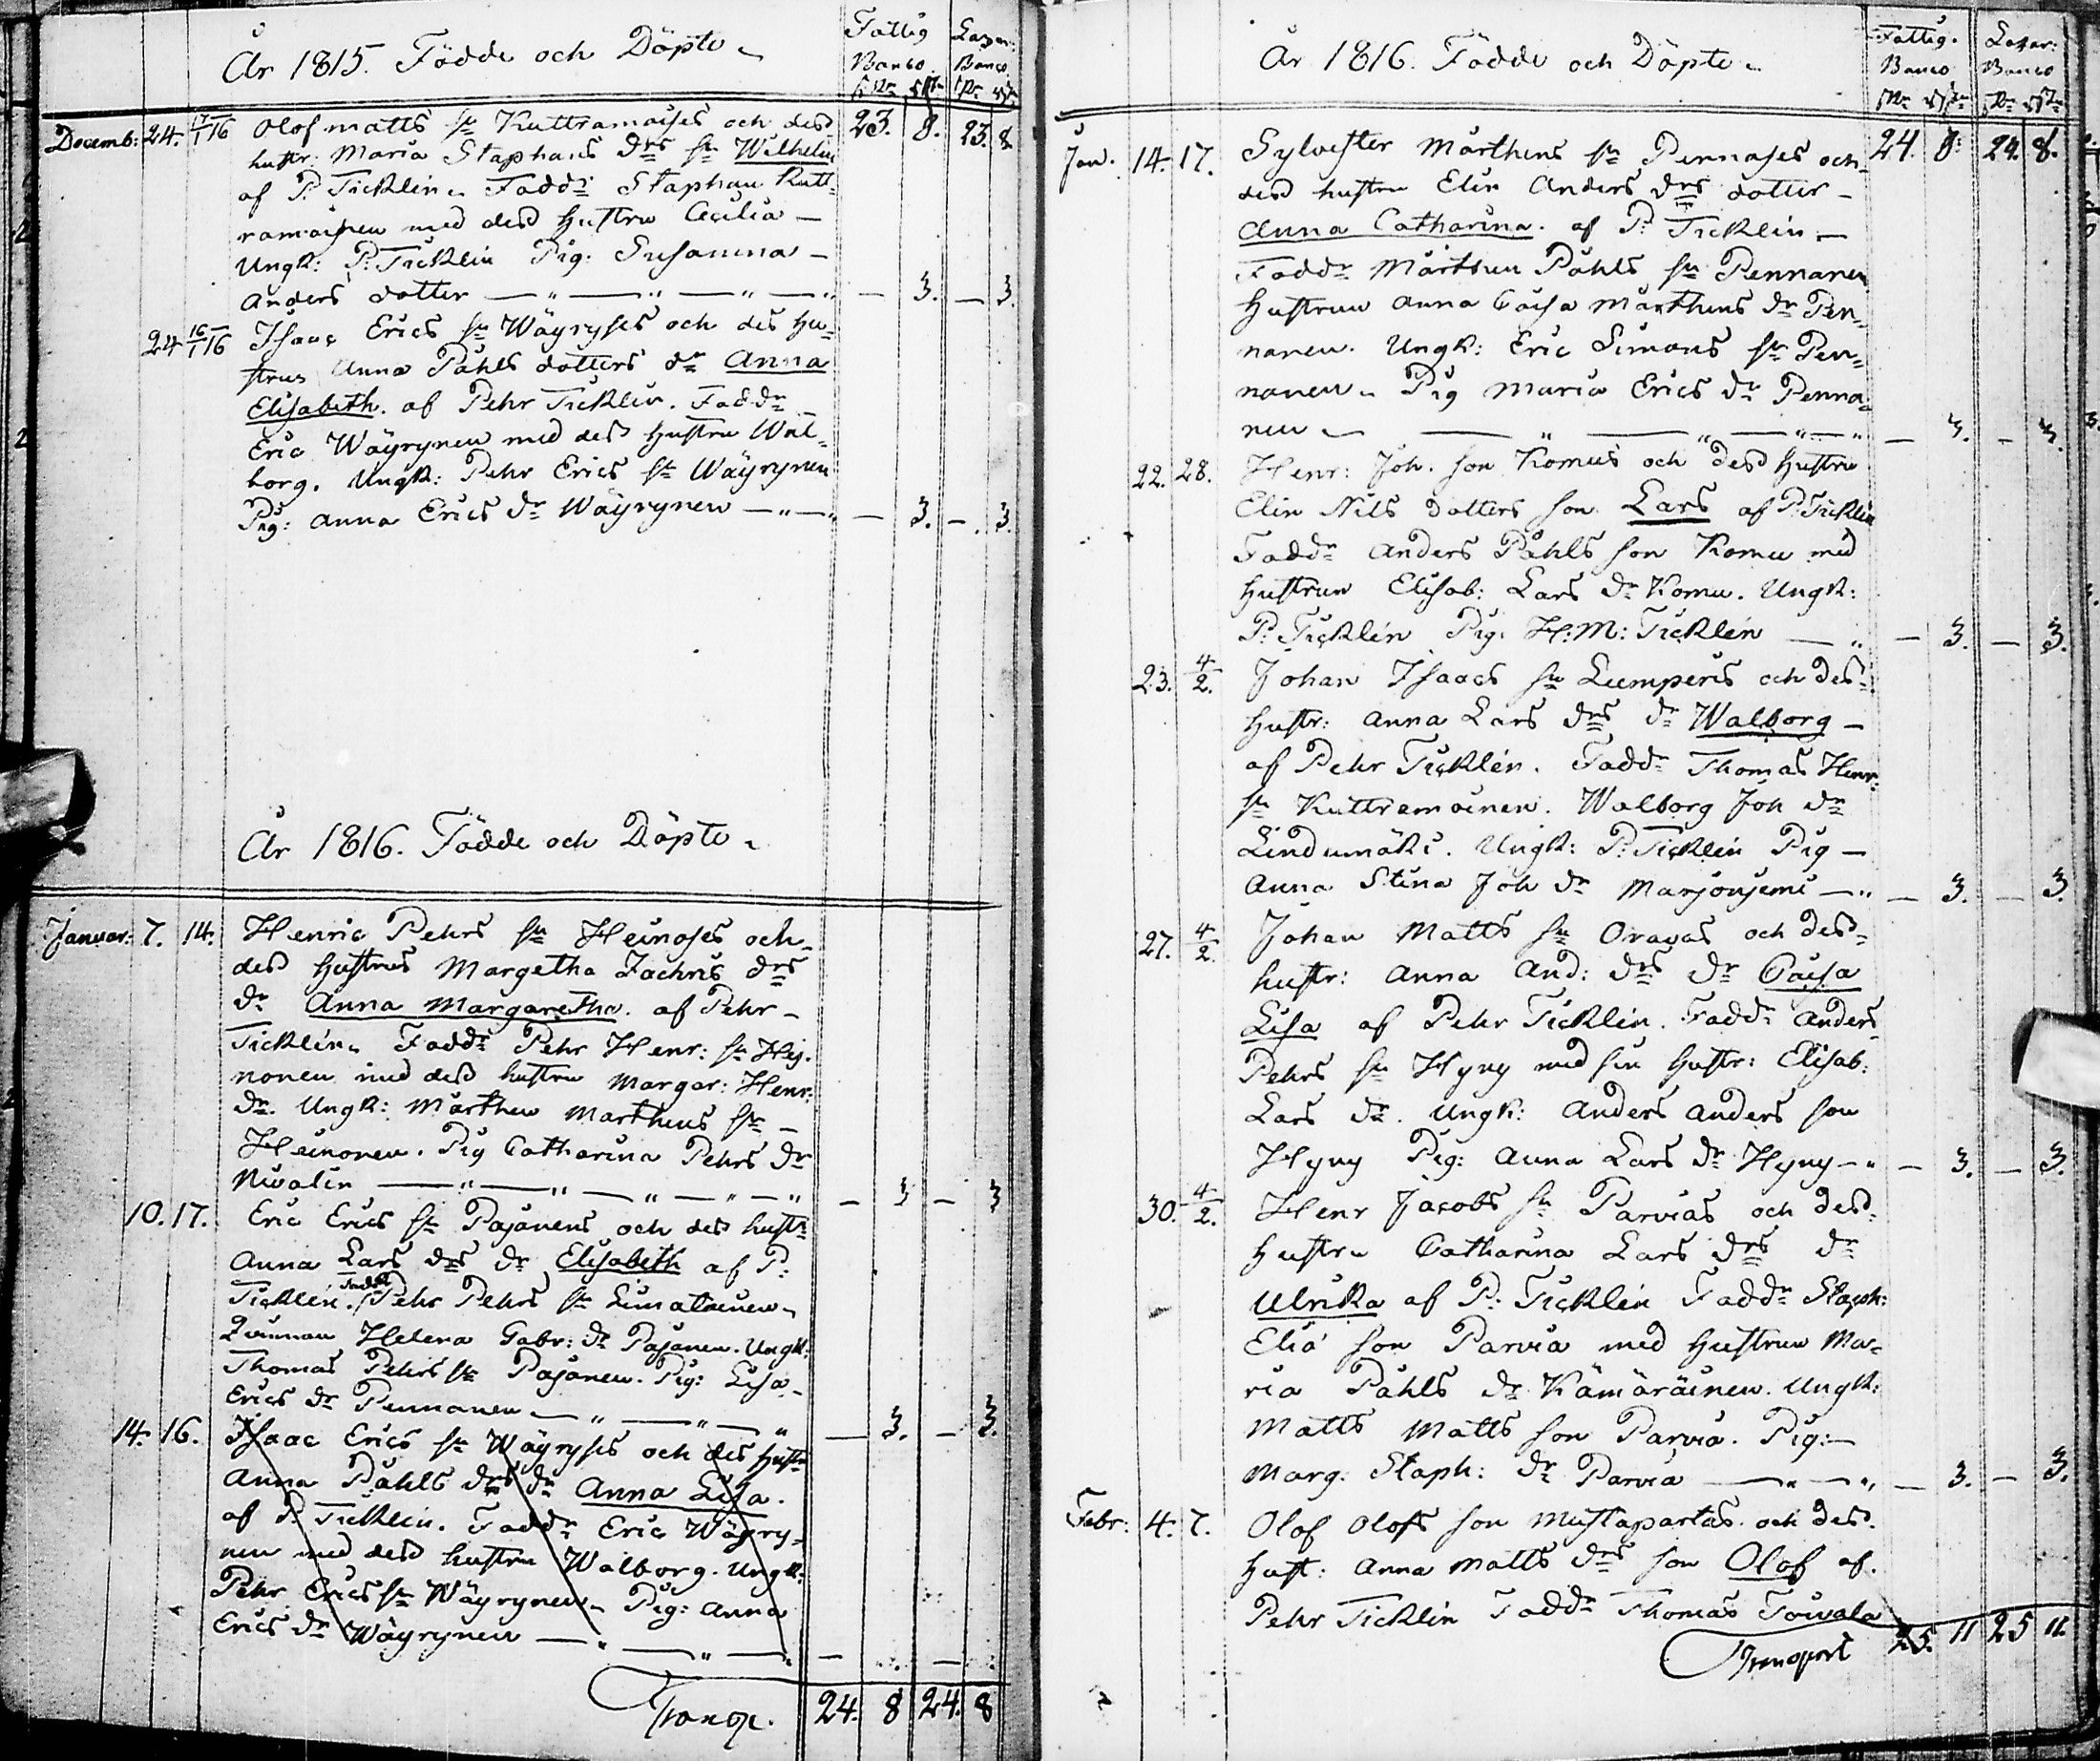 År 1815. Födde och Döpte
Fattig Lazar:
Banco Banco
Decemb: 24. 17/1 16 Olof Matts sn Kuttramoises och dess 23. 8. 23. 8.
hustr: Maria Staphans drs sn Wilhelm
af P. Ticklin. Faddr Staphan Kutt-
ramoisen med dess Hustru Cecilia
Ungk: P. Ticklin Pig: Susanna
Anders dotter — 3. — 3.
24 16/1 16 Isaac Erics sn Wäyryses och des Hu-
strus Anna Påhls dotters dr Anna
Elisabeth. af Pehr Ticklin. Faddr
Eric Wäyrynen med dess Hustru Wal-
borg. Ungk: Pehr Erics sn Wäyrynen
Pig: Anna Erics dr Wäyrynen — 3. — 3.
År 1816. Födde och Döpte
Januar: 7. 14. Henric Pehrs sn Heinoses och
dess Hustrus Margetha Zachris drs
dr Anna Margaretha. af Pehr
Ticklin. Faddr Pehr Henr: sn Hej-
nonen med dess hustru Margar: Henr:
dr. Ungk: Mårthen Marthens sn
Heinonen. Pig Catharina Pehrs dr
Nivalin — 3 — 3
10. 17. Eric Erics sn Pajanens och des hustr
Anna Lars drs dr Elisabeth af P.
Ticklin. Faddr Pehr Pehrs sn Limatainen
Quinnan Helena Gabr: dr Pajanen. Ungk:
Thomas Pehrs sn Pajanen. Pig: Lisa
Erics dr Pennanen — 3. — 3.
14. 16. Isaac Erics sn Wäyryses och des Hustr
Anna Påhls drs dr Anna Lisa.
af P. Ticklin. Faddr Eric Wäyry-
nen med dess hustru Walborg. Ungk:
Pehr Erics sn Wäyrynen. Pig: Anna
Erics dr Wäyrynen
Transp. 24. 8 24. 8
År 1816. Födde och Döpte
Fattig. Lazar:
Banco Banco
Jan. 14. 17. Sylvester Mårthens sn Pennases och 24. 8. 24. 8.
dess hustru Elin Anders drs dotter
Anna Catharina. af P. Ticklin
Faddr Mårthen Påhls sn Pennanen
Hustrun Anna Caisa Mårthens dr Pen-
nanen. Ungk: Eric Simons sn Pen-
nanen. Pig Maria Erics dr Penna-
nen — 3. — 3.
22. 28. Henr: Joh. son Komus och dess Hustru
Elin Nils dotters son Lars af P. Ticklin
Faddr Anders Påhls son Komu med
Hustrun Elisab: Lars dr Komu. Ungk:
P. Ticklin Pig. H: M: Ticklin — 3 — 3.
23. 4/2. Johan Isaacs sn Lumperis och des
Hustr: Anna Lars drs dr Walborg
af Pehr Ticklin. Faddr Thomas Henr:
sn Kuttramoinen. Walborg Joh dr
Lindumäki. Ungk: P. Ticklin Pig
Anna Stina Joh dr Marjoniemi — 3. — 3.
27. 4/2. Johan Matts sn Oravas och dess
hustr: Anna And: drs dr Caisa
Lisa af Pehr Ticklin. Faddr Anders
Pehrs sn Hyny med sin Hustr: Elisab:
Lars dr. Ungk: Anders Anders son
Hyny Pig: Anna Lars dr Hyny — 3. — 3.
30. 4/2. Henr Jacobs sn Parvias och dess
Hustru Catharina Lars drs dr
Ulrika af P. Ticklin Faddr Staph:
Elia son Parvia med Hustrun Ma-
ria Påhls dr Kämäräinen. Ungk:
Matts Matts son Parvia. Pig:
Marg: Staph: dr Parvia — 3. — 3.
Febr: 4. 7. Olof Olofs son Mustapartas och des
Hust: Anna Matts drs son Olof af
Pehr Ticklin Faddr Thomas Toivala
Transport 25. 11 25 11.